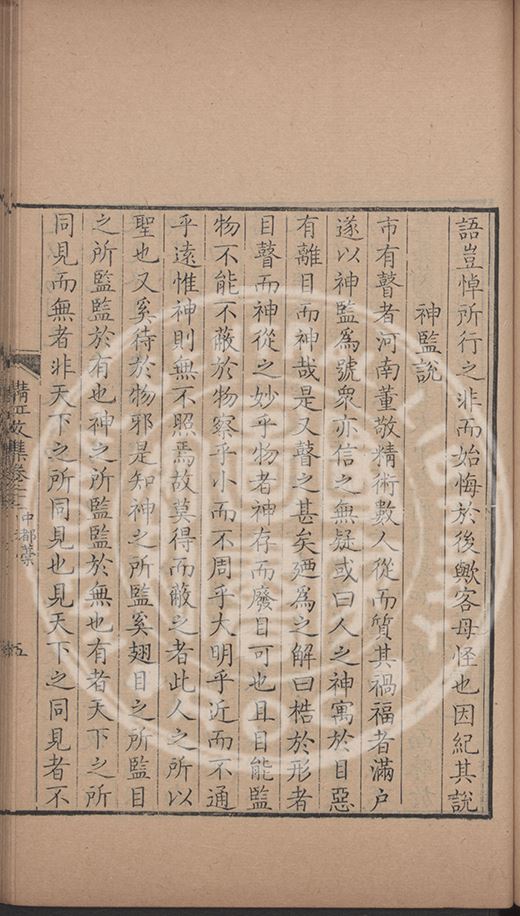 語豈悼所行之非而始悔於後歟客母怪也因紀其說
神監說
市有瞽者河南董敬精術數人從而質其禍福者滿戶
遂以神監爲號衆亦信之無疑或曰人之神寓於目惡
有離目而神哉是又瞽之甚矣廼爲之解曰梏於形者
目瞽而神從之妙乎物者神存而廢目可也且目能監
物不能不蔽於物察乎小而不周乎大明乎近而不通
乎遠惟神則無不照焉故莫得而蔽之者此人之所以
聖也又奚待於物邪是知神之所監奚翅目之所監目
之所監監於有也神之所監監於無也有者天下之所
同見而無者非天下之所同見也見天下之同見者不
文集卷